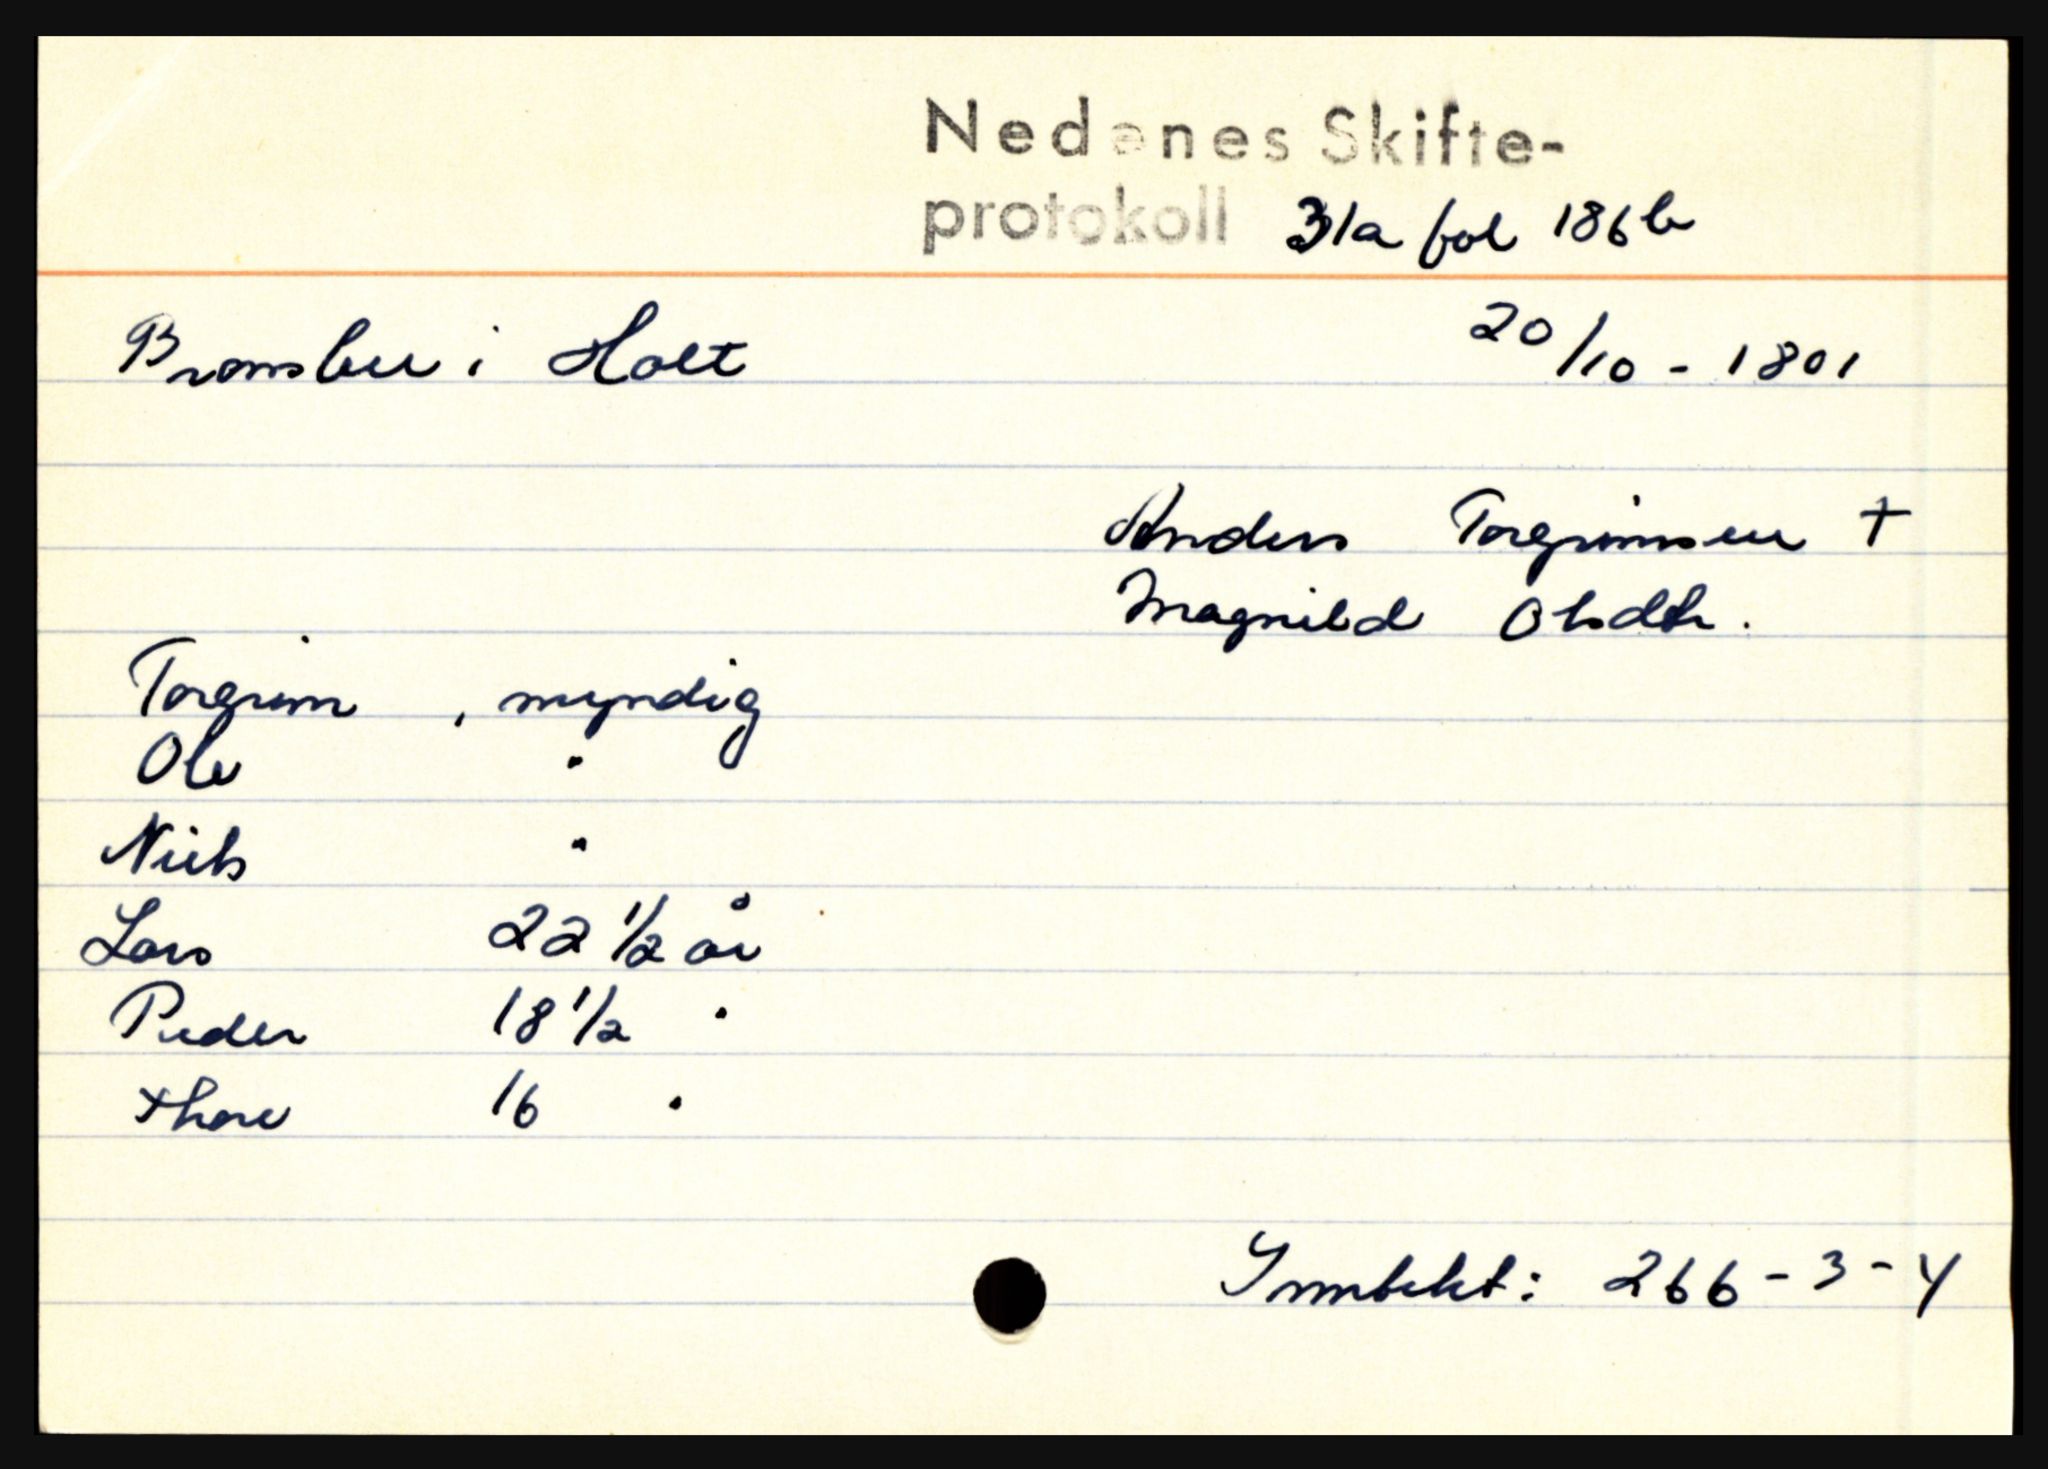 Nedenes Skifte-
protokoll 31a fol 186b
Bromsbu i Holt 20/10 - 1801
Anders Torgrimsen †
Magnild Olsdtr.
Torgrim , myndig
Ole "
Niels "
Lars 22 1/2 år
Peder 18 1/2 "
Thore 16 "
Inntekt: 266 - 3 - 4